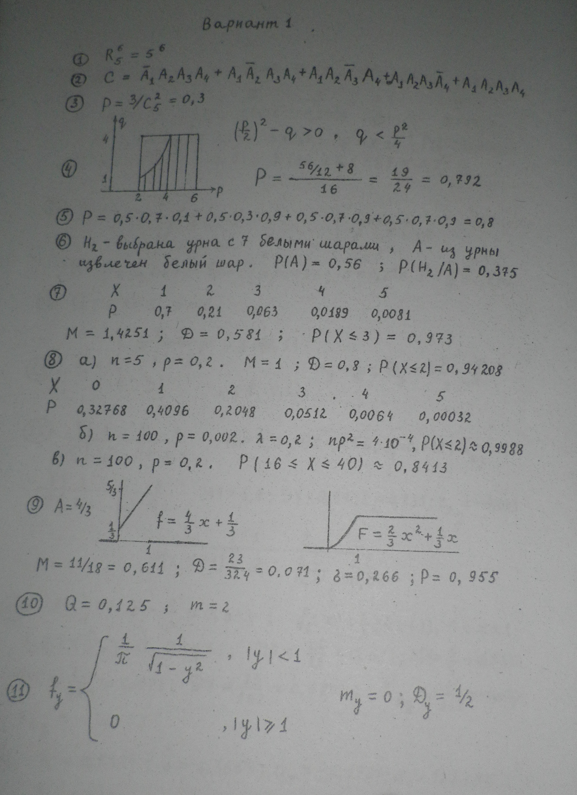 Вариант 1
① R₅⁶ = 5⁶
② C = Ā₁A₂A₃A₄ + A₁Ā₂A₃A₄ + A₁A₂Ā₃A₄ + A₁A₂A₃Ā₄ + A₁A₂A₃A₄
③ P = 3/C₅² = 0,3
q
4
1
2 4 6 p
(p/2)² - q > 0 , q < p²/4
④ P = (56/12 + 8)/16 = 19/24 = 0,792
⑤ P = 0,5·0,7·0,1 + 0,5·0,3·0,9 + 0,5·0,7·0,9 + 0,5·0,7·0,9 = 0,8
⑥ H₂ - выбрана урна с 7 белыми шарами, A - из урны
извлечен белый шар. P(A) = 0,56 ; P(H₂/A) = 0,375
⑦ X 1 2 3 4 5
P 0,7 0,21 0,063 0,0189 0,0081
M = 1,4251 ; D = 0,581 ; P(X ≤ 3) = 0,973
⑧ а) n = 5 , p = 0,2 . M = 1 ; D = 0,8 ; P(X≤2) = 0,94208
X 0 1 2 3 4 5
P 0,32768 0,4096 0,2048 0,0512 0,0064 0,00032
б) n = 100 , p = 0,002. λ = 0,2 ; np² = 4·10⁻⁴, P(X≤2) ≈ 0,9988
в) n = 100 , p = 0,2. P(16 ≤ X ≤ 40) ≈ 0,8413
⑨ A = 4/3
5/3
1/3
1
f = 4/3 x + 1/3
1
F = 2/3 x² + 1/3 x
M = 11/18 = 0,611 ; D = 23/324 = 0,071 ; δ = 0,266 ; P = 0,955
⑩ Q = 0,125 ; m = 2
1/π 1/√(1 - y²) , |y| < 1
⑪ f_y = { m_y = 0 ; D_y = 1/2
0 , |y| ⩾ 1